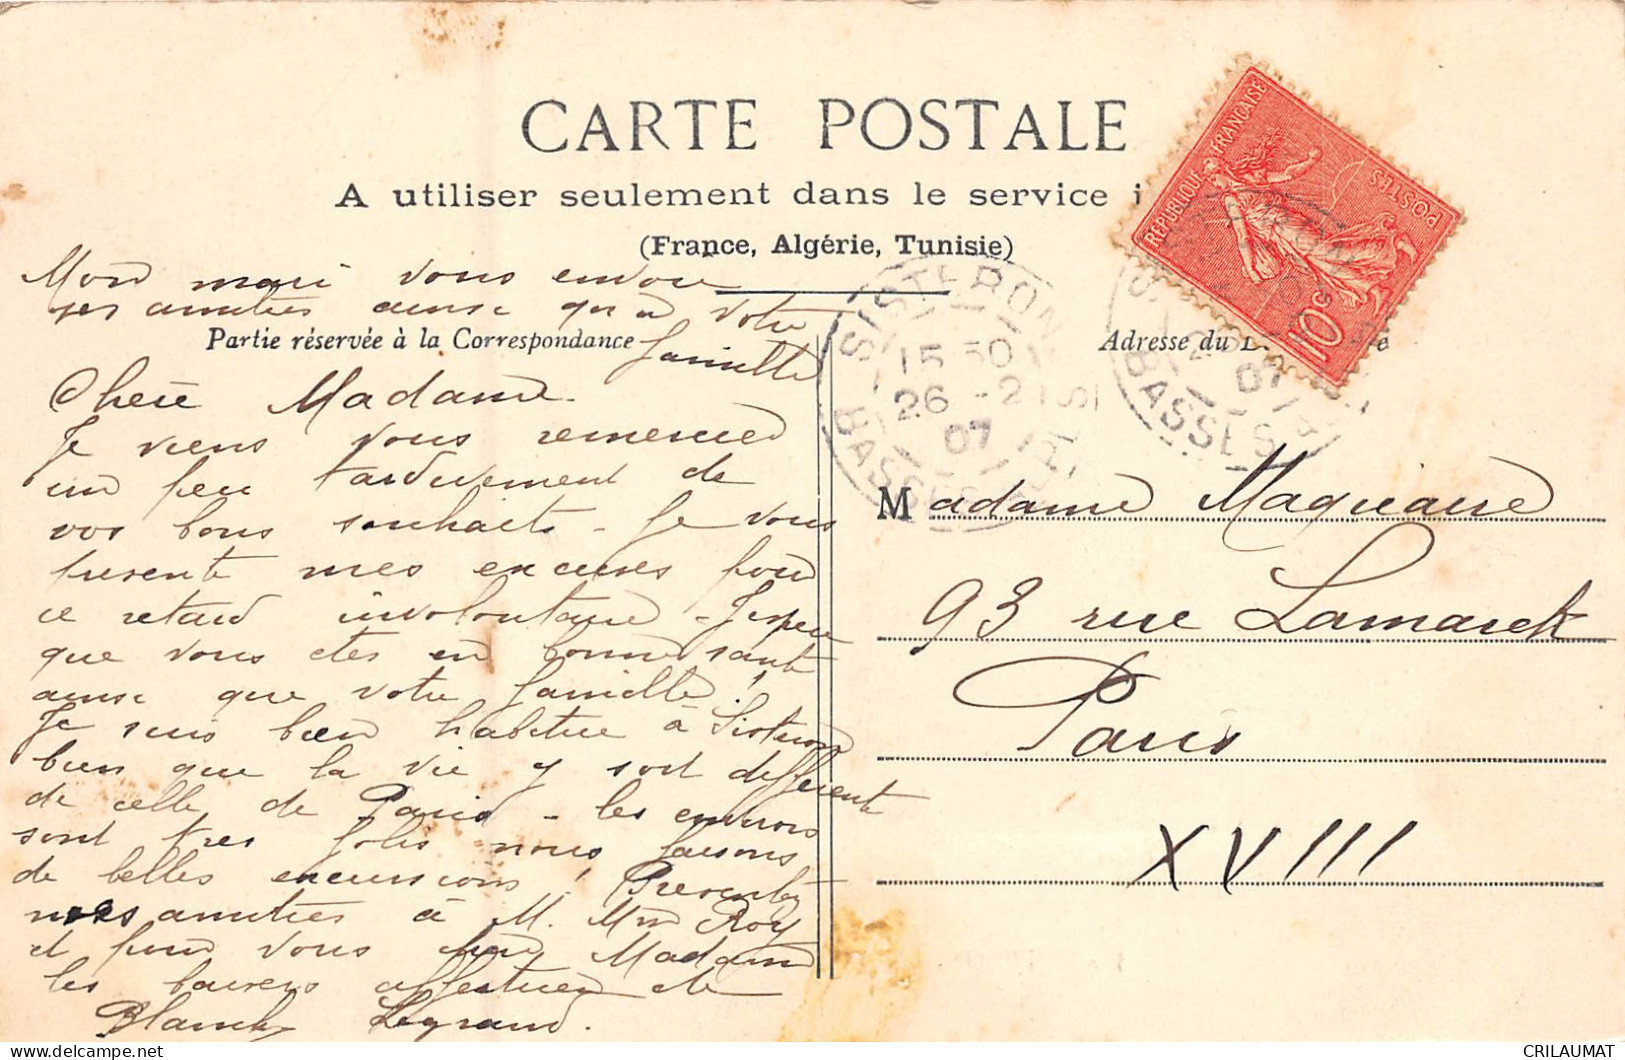 CARTE POSTALE
A utiliser seulement dans le service i
(France, Algérie, Tunisie)
REPUBLIQUE FRANCAISE
POSTES
10c
Mon mari vous envoie
ses amities ainsi qu'a votre
famille
Partie réservée à la Correspondance
Chere Madame.
Je viens vous remercier
un peu tardivement de
vos bons souhaits - Je vous
presente mes excuses pour
ce retard involontaire - J'espere
que vous etes en bonne santé
ainsi que votre famille!
Je suis bien habituee à Sisteron
bien que la vie y soit differente
de celle de Paris - les environs
sont tres jolis nous faisons
de belles excursions! Presentez
mes amities à M. Mme Roy
et pour vous chere Madame
les baisers affectueux de
Blanche Legrand.
SISTERON
15 50
26 -2
07
BASSES
Adresse du
BASSES
07
Madame Maquaire
93 rue Lamarck
Paris
XVIII
CRILAUMAT